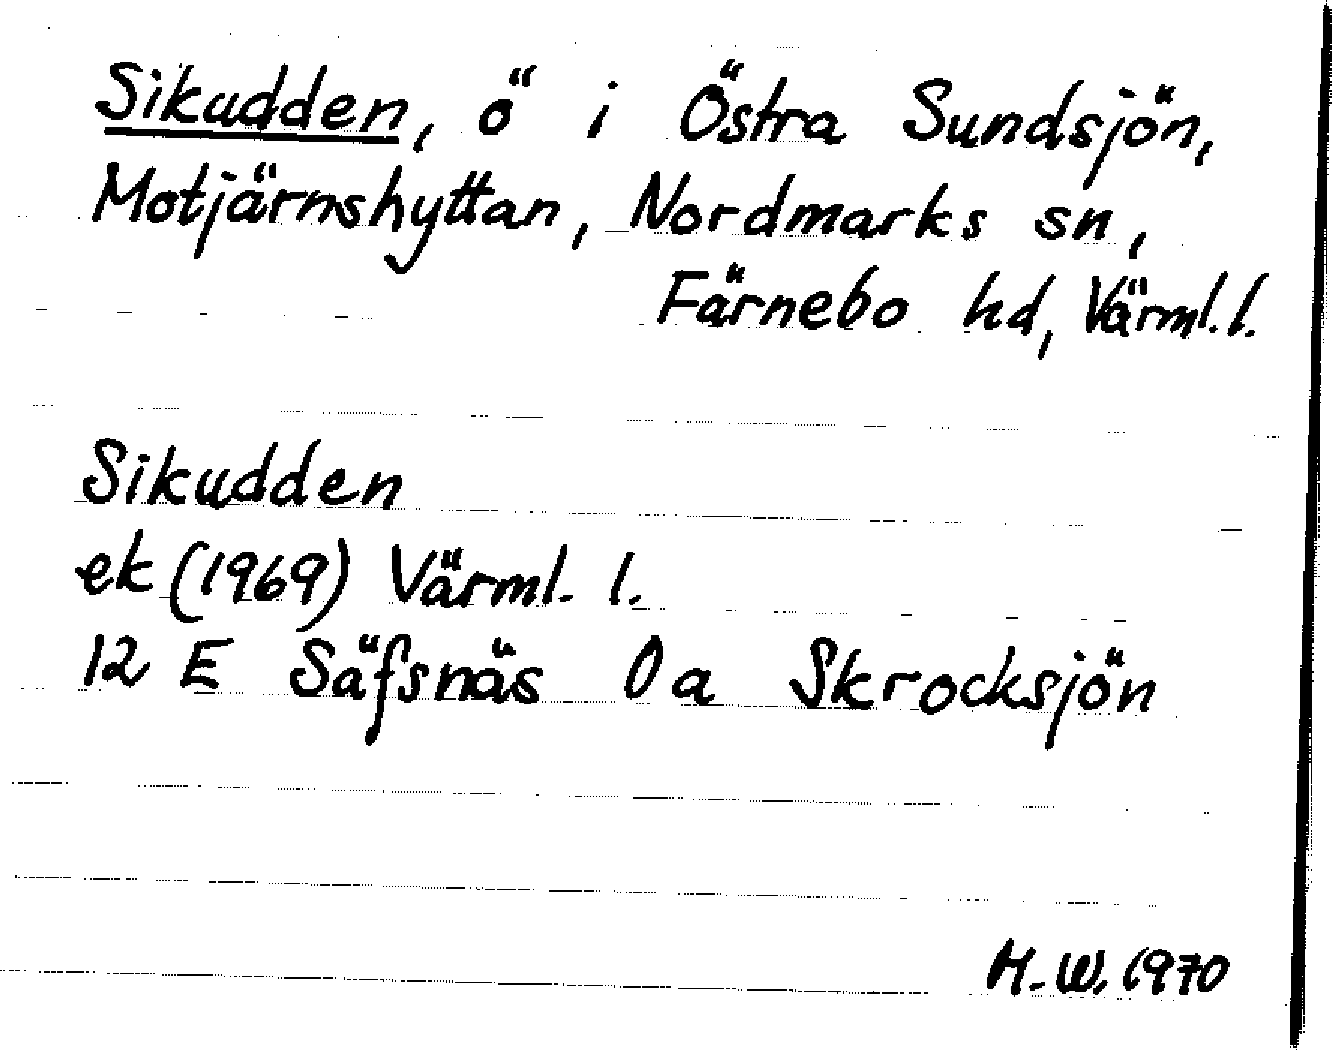 Sikudden, ö i Östra Sundsjön,
Motjärnshyttan, Nordmarks sn,
Färnebo hd, Värml. l.
Sikudden
ek (1969) Värml. l.
12 E Säfsnäs 0 a Skrocksjön
H.W. 1970